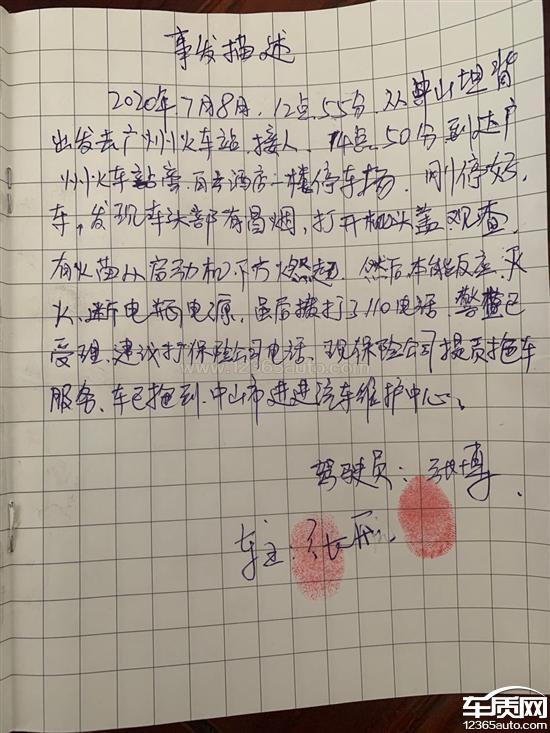 事发描述
2020年7月8日.12点55分.从中山坦背
出发去广州火车站.接人.14点.50分到达广
州火车站旁.白云酒店一楼停车场.刚停好
车,发现车头部有冒烟,打开机头盖观查.
有火苗从启动机下方燃起.然后本能反应.灭
火、断电瓶电源,虽后拨打了110电话.警察已
受理.建议打保险公司电话.现保险公司提员拖车
服务、车已拖到.中山市进进汽车维护中心。
驾驶员:张博.
车主:张
www.12365auto.com
车质网
12365auto.com